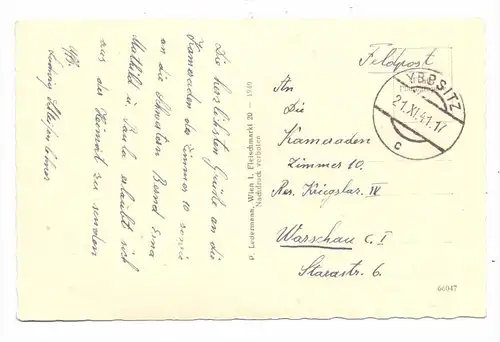 Die herzlichsten Grüße an die
Kameraden des Zimmer 10 sowie
an die Schwestern Bernd Erna
Mathild u. Paula erlaubt sich
aus der Heimat zu senden
Ludwig
P. Ledermann, Wien I, Fleischmarkt 20 — 1940
Nachdruck verboten
Feldpost
YBBSITZ
21.XI.41.17
c
An
Die
Kameraden
Zimmer 10.
Res. Kriegslaz. IV
Warschau C. 1
Starastr. 6.
66047